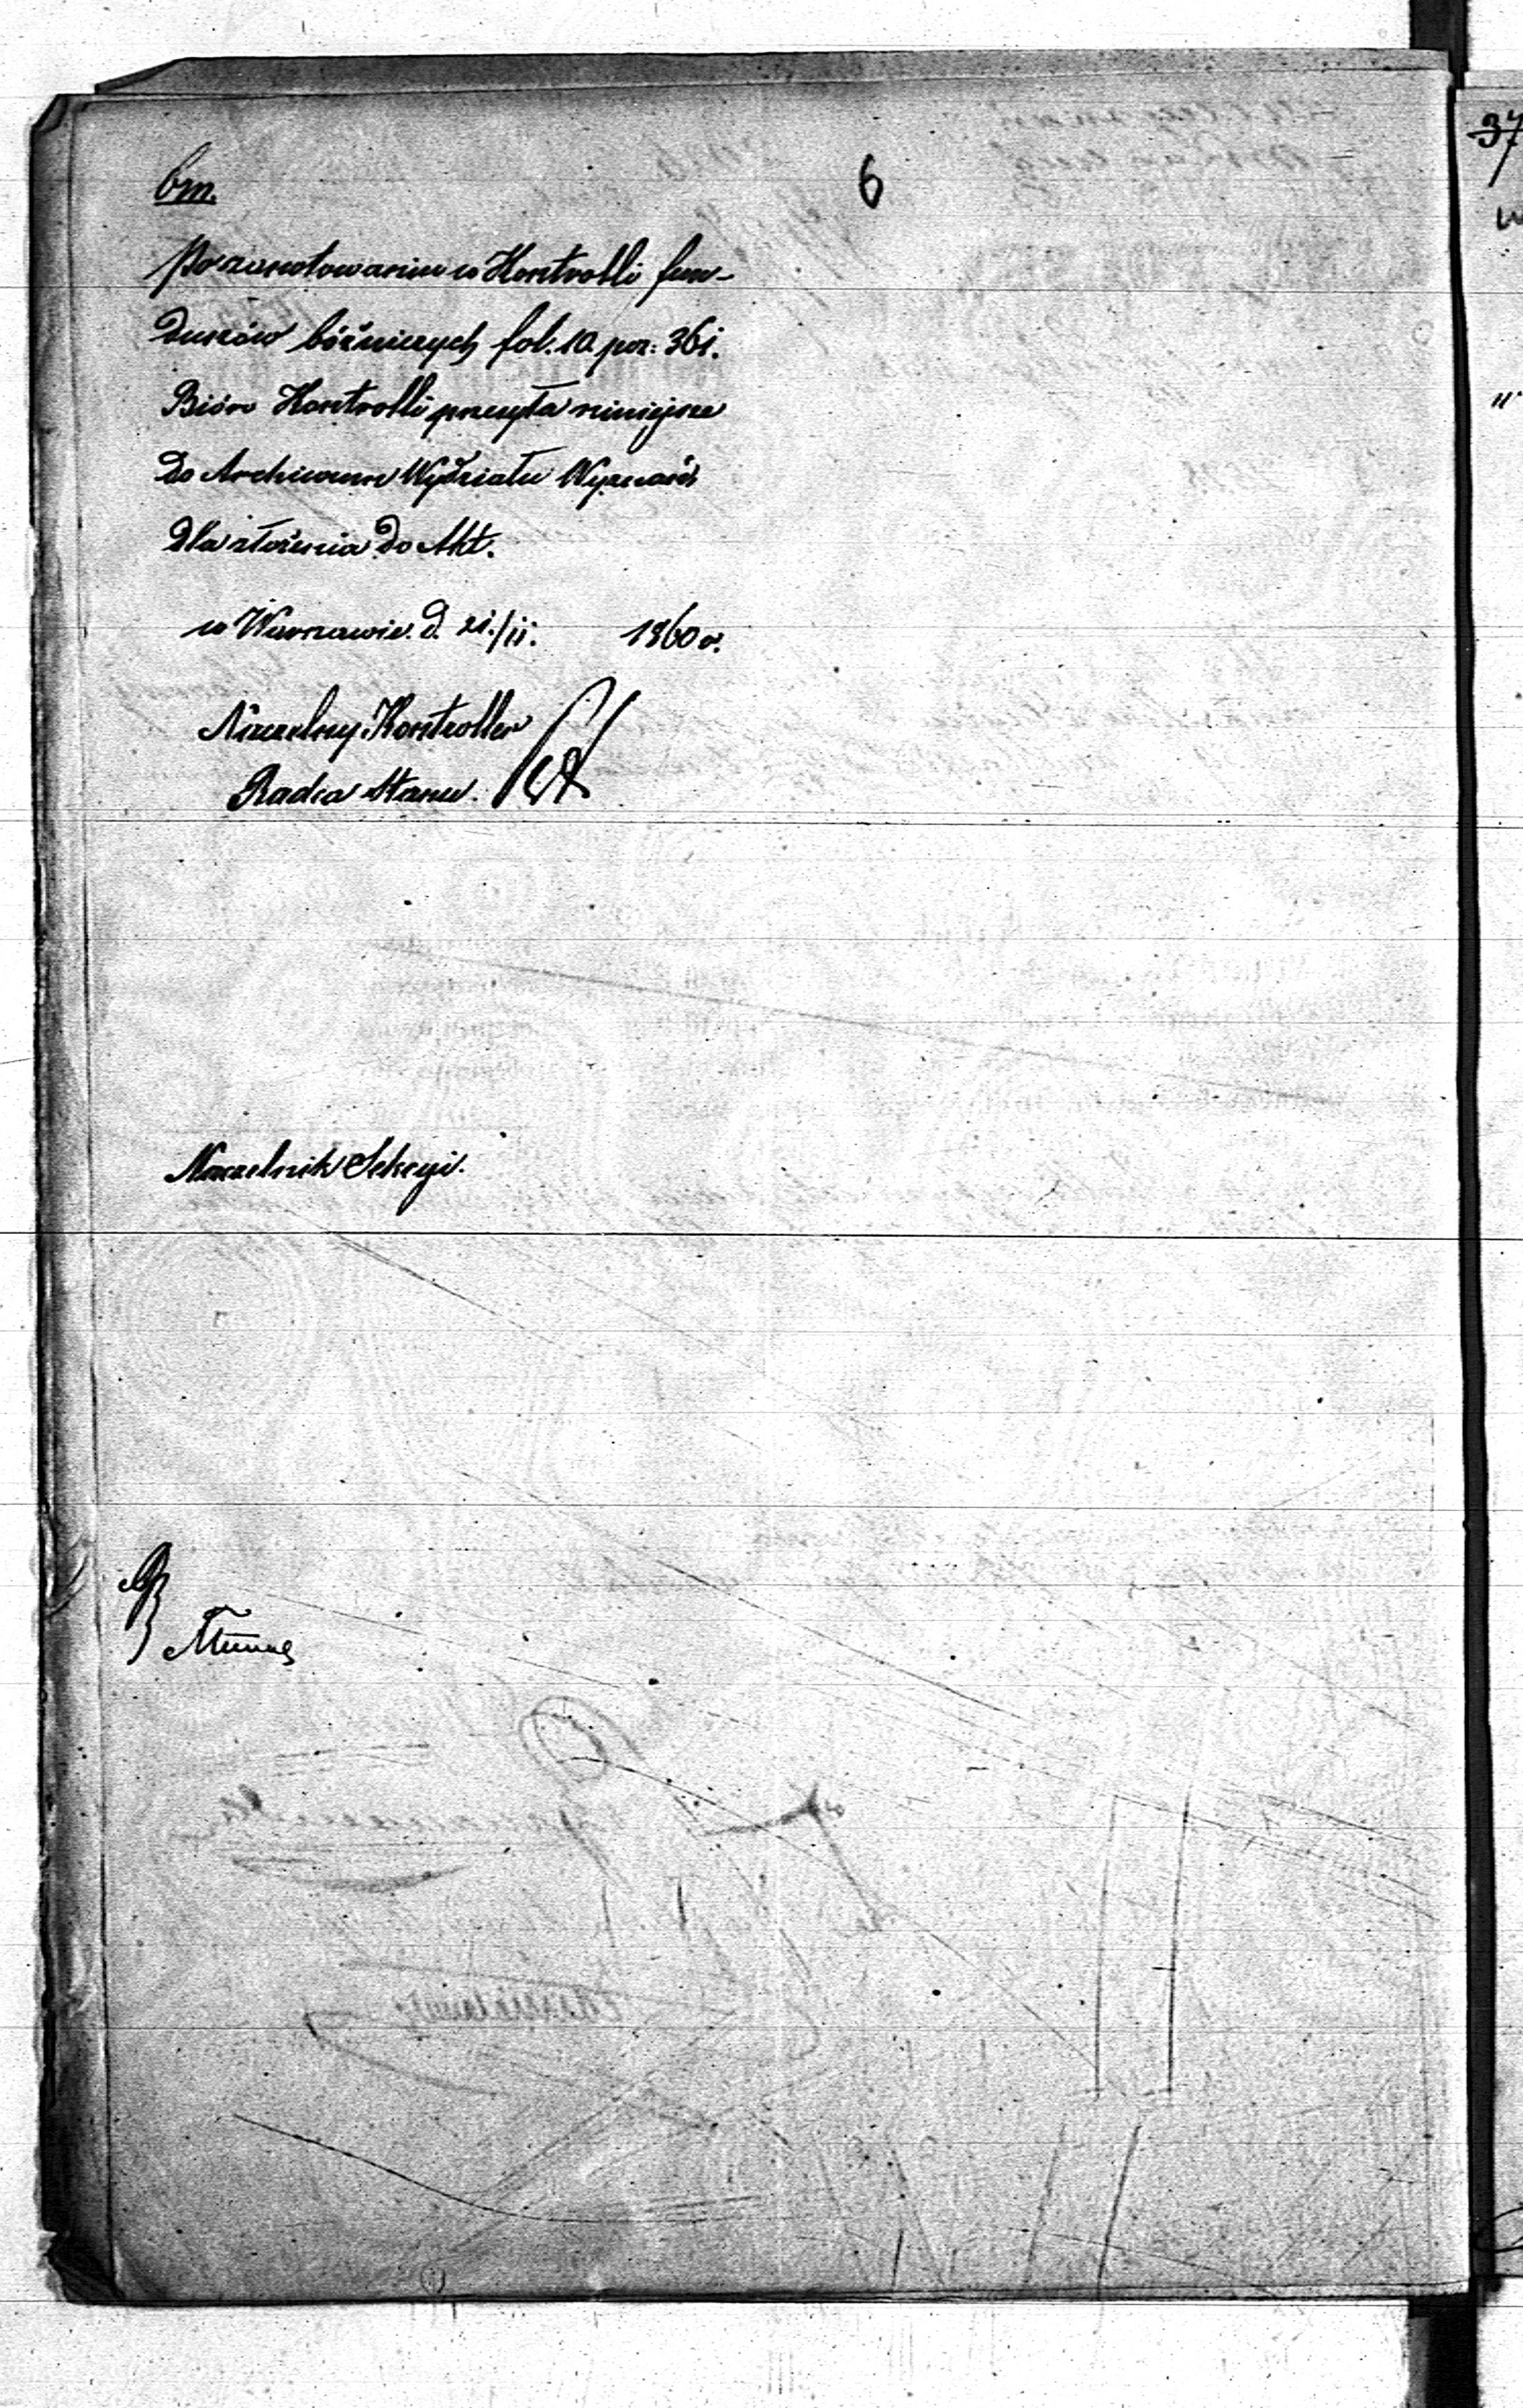 bm.
6
Po zanotowaniu w Kontrolli fun-
duszów bóżniczych fol. 10 poz: 361.
Bióro Kontrolli przesyła niniejsze
do Archiwum Wydziału Wyznań
dla złożenia do Akt.
w Warszawie d. 21./11. 1860 r.
Naczelny Kontroller
Radca Stanu.
Naczelnik Sekcyi.
37